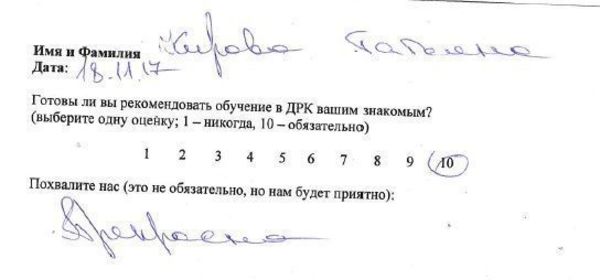 Имя и Фамилия Кирова Татьяна
Дата: 18.11.17
Готовы ли вы рекомендовать обучение в ДРК вашим знакомым?
(выберите одну оценку; 1 – никогда, 10 – обязательно)
1 2 3 4 5 6 7 8 9 10
Похвалите нас (это не обязательно, но нам будет приятно):
Прекрасно